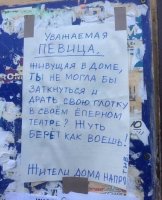 УВАЖАЕМАЯ
ПЕВИЦА,
ЖИВУЩАЯ В ДОМЕ,
ТЫ НЕ МОГЛА БЫ
ЗАТКНУТЬСЯ И
ДРАТЬ СВОЮ ГЛОТКУ
В СВОЁМ ЁПЕРНОМ
ТЕАТРЕ? ЖУТЬ
БЕРЁТ КАК ВОЕШЬ!
ЖИТЕЛИ ДОМА НАПРО